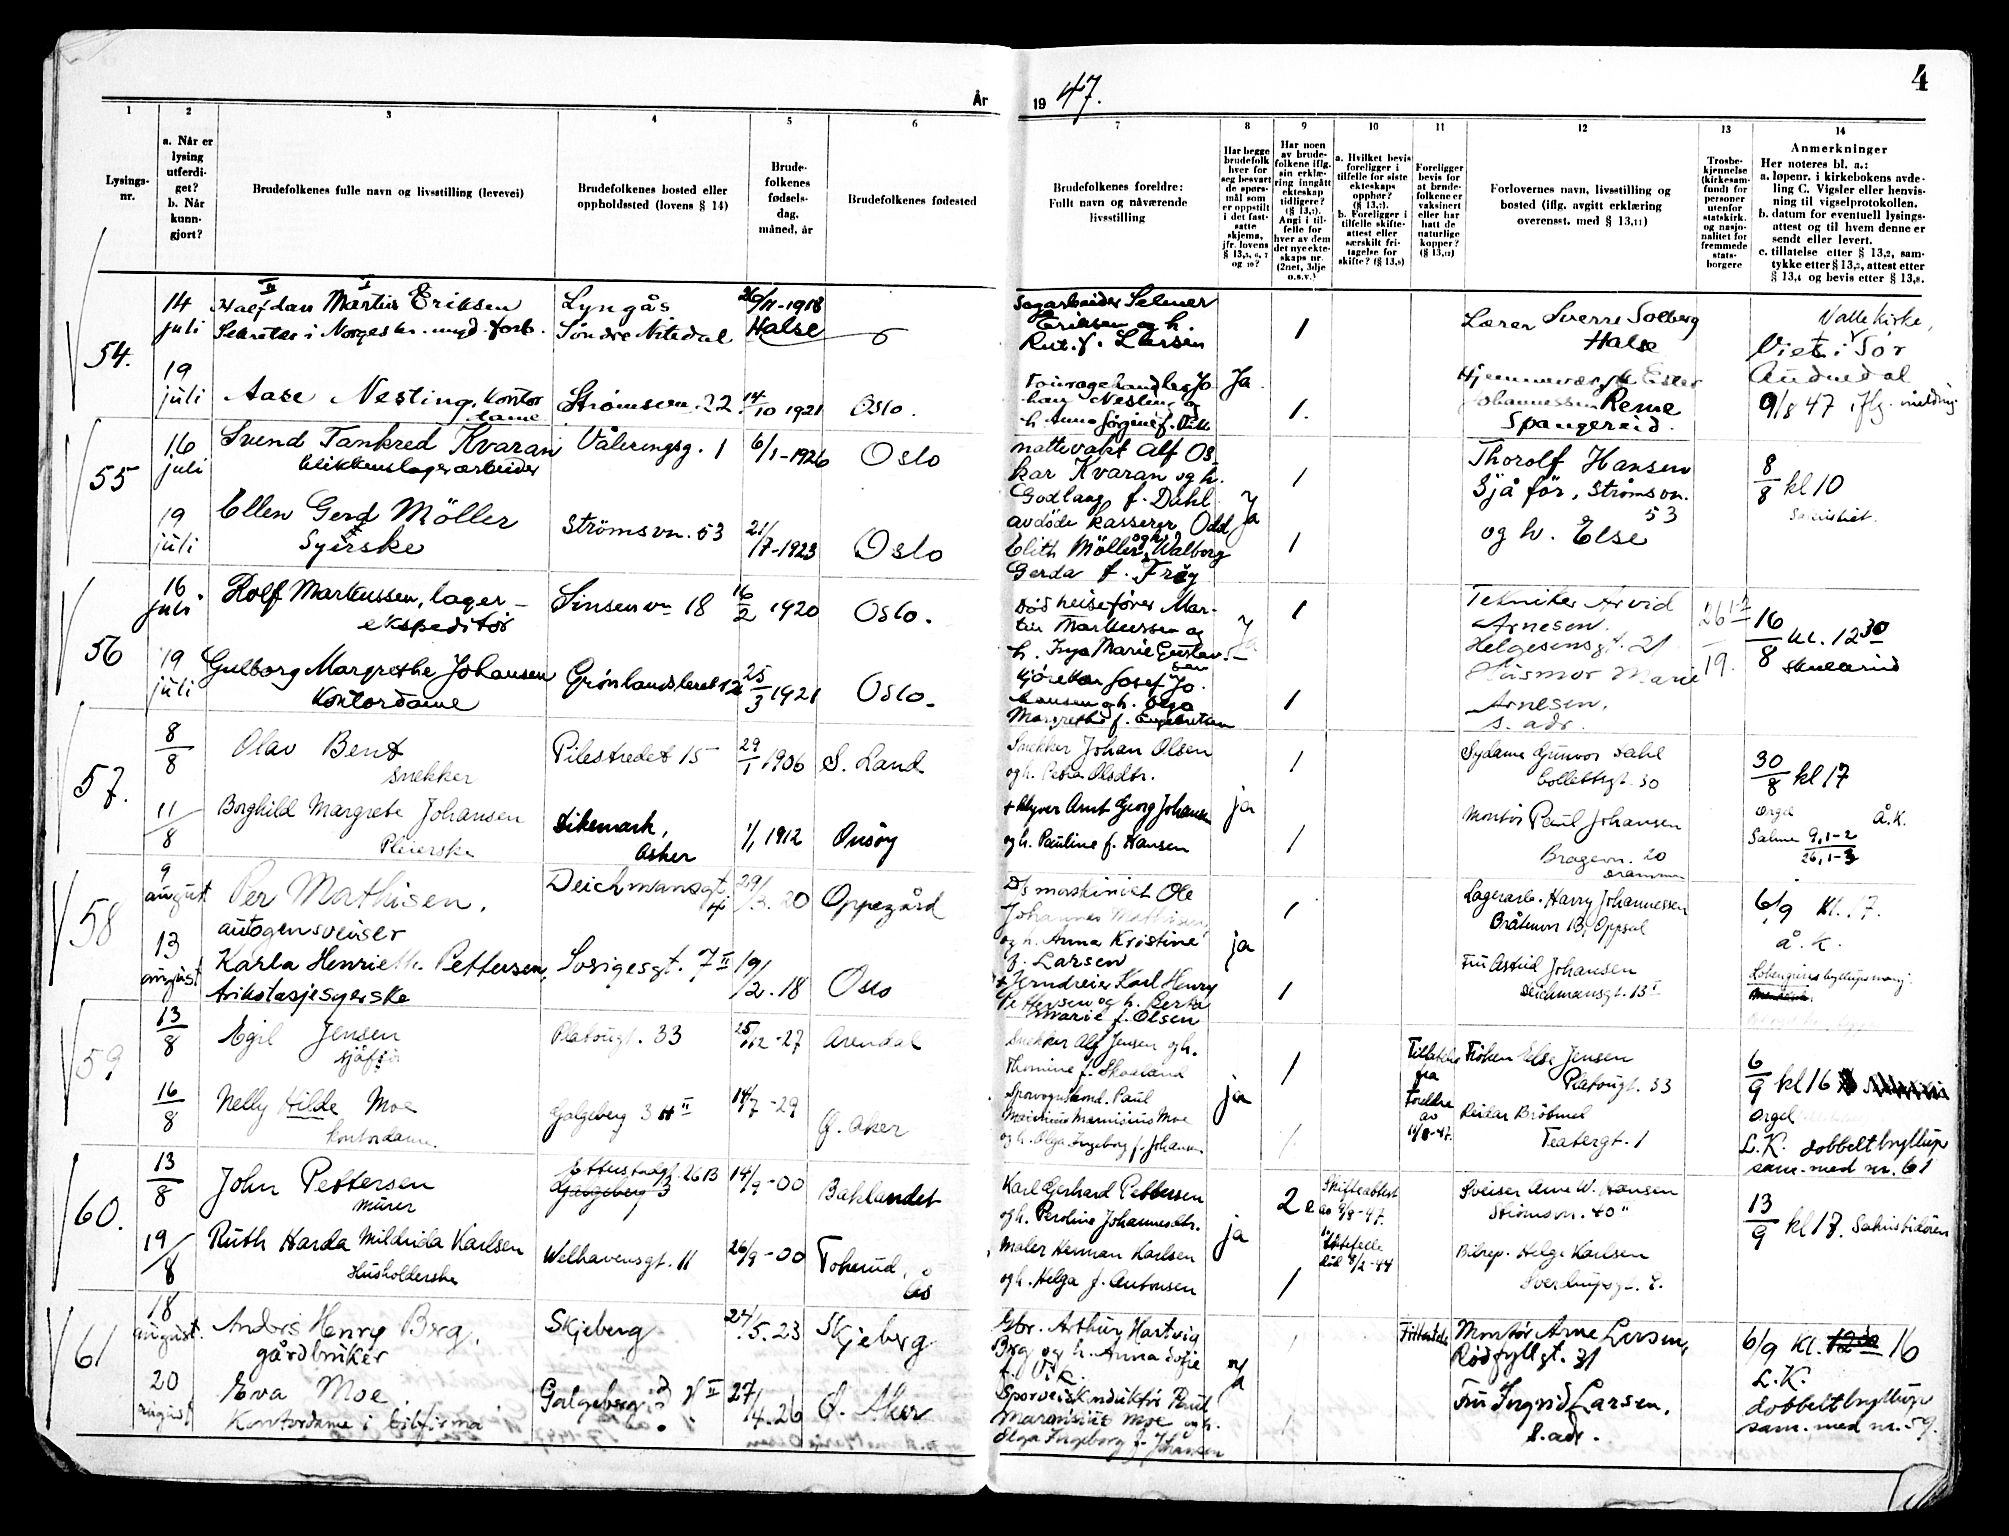 År
19 47.
4
1
2
3
4
5
6
7
8
9
10
11
12
13
14
Lysings-
nr.
a. Når er
lysing
utferdi-
get?
b. Når
kunn-
gjort?
Brudefolkenes fulle navn og livsstilling (levevei)
Brudefolkenes bosted eller
oppholdssted (lovens § 14)
Brude-
folkenes
fødsels-
dag,
måned, år
Brudefolkenes fødested
Brudefolkenes foreldre:
Fullt navn og nåværende
livsstilling
Har begge
brudefolk
hver for
seg besvart
de spørs-
mål som
er oppstilt
i det fast-
satte
skjema,
jfr. lovens
§ 13,5, 6, 7
og 10?
Har noen
av brude-
folkene iflg.
sin erklæ-
ring inngått
ekteskap
tidligere?
(§ 13,7).
Angi i til-
felle for
hver av dem
det nye ekte-
skaps nr.
(2net, 3dje
o.s.v.)
a. Hvilket bevis
foreligger i
tilfelle for siste
ekteskaps
opphør?
(§ 13,7).
b. Foreligger i
tilfelle skifte-
attest eller
særskilt fri-
tagelse for
skifte? (§ 13,8)
Foreligger
bevis for
at brude-
folkene er
vaksinert
eller har
hatt de
naturlige
kopper?
(§ 13,12)
Forlovernes navn, livsstilling og
bosted (iflg. avgitt erklæring
overensst. med § 13,11)
Trosbe-
kjennelse
(kirkesam-
fund) for
personer
utenfor
statskirk.
og nasjo-
nalitet for
fremmede
stats-
borgere
Anmerkninger
Her noteres bl. a.:
a. løpenr. i kirkebokens avde-
ling C. Vigsler eller henvis-
ning til vigselprotokollen.
b. datum for eventuell lysings-
attest og til hvem denne er
sendt eller levert.
c. tillatelse etter § 13,2, sam-
tykke etter § 13,3, attest etter
§ 13,4 og bevis etter § 13,8.
54.
14
juli
II I
Halfdan Martin Eriksen
Sekretær i Norges kr. ungd. forb.
Lyngås
Søndre Nitedal
26/11-1918
Halse
Sagarbeider Selmer
Eriksen og h.
Rut f. Larsen
1
Lærer Sverre Solberg
Halse
Valle Kirke,
Viet i Sør
Audnedal
9/8 47 iflg. melding
19
juli
Aase Nesting, kontor
dame
Strømsvn. 22
14/10 1921
Oslo.
Ja
1.
Johannessen Reme
Spangereid.
55
16
juli
Svend Tankred Kvaran
blikkenslagerarbeider
Vålerengg. 1
6/1-1926
Oslo
nattevakt Alf Os-
kar Kvaran og h.
Godlaug f. Dahl
1
Thorolf Hansen
Sjåför, Strömsvn.
53
og h. Else
8/8 kl 10
Sakristiet.
19
juli
Ellen Gerd Möller
Syerske
Strömsvn. 53
21/7-1923
Oslo
Ja
avdöde kasserer Odd
Elith Möller og h. Walborg
Gerda f. Fröy
1
56
16
juli
Rolf Markussen, lager-
ekspeditør
Sinsenvn 18
16/2 1920
Oslo.
død heisefører Mar-
tin Markussen og
h. Inga Marie Gustav-
sen
Ja
1
Tekniker Arvid
Arnesen.
Helgesensgt. 21
26 1-2
19.
16/8 kl. 12 30
19
juli
Gulborg Margrethe Johansen
Kontordame
Grønlandsleret 12
25/3 1921
Oslo.
Kjørekar Josef Jo-
hansen og h. Olga
Margrethe f. Engebretsen
1
Husmor Marie
Arnesen.
s. adr.
57.
8/8
Olav Bent
snekker
Pilestredet 15
29/1 1906
S. Land
Snekker Johan Olsen
og h. Petra Olsdtr.
1
Sydame Gunvor Dahl
Collettsgt. 30
30/8 kl 17
Orgel
Å.K.
Salme 9,1-2
26,1-3
11/8
Borghild Margrete Johansen
Pleierske
Dikemark,
Asker
1/1 1912
Onsøy
+ Skyver Arnt Georg Johansen
og h. Pauline f. Hansen
ja
1
Montør Paul Johansen
Bragevn. 20
Drammen
58
9
august
Per Mathisen.
autogensveiser
Deichmansgt
29/3.20
Oppegård
D/s maskinist Ole
Johannes Mathisen
og h. Anna Kristine
f. Larsen
ja
1
Lagerarb. Harry Johannessen
Bråtenvn 13, Oppsal
6/9 kl. 17.
Å. K.
13
august
Karla Henriette Pettersen,
Trikotasjesyerske
Sverigesgt. 7 II
19/2.18
Oslo
+ Jerndreier Karl Henry
Pettersen og h. Berta
Marie f. Olsen
1
Fru Astrid Johansen
Deichmansgt. 13 I
Lohengrins bryllupsmarsj.
59
13/8
Egil Jensen
sjåfør
Platougt. 33
25/12-27
Arendal
Snekker Alf Jensen og h.
Thomine f. Skaaland
1
Tillatelse
fra
Foreldre
av
11/8-47.
Frøken Else Jensen
Platougt. 33
6/9 kl 16
Orgel
L.K. dobbeltbryllup
sam. med nr. 61
16/8
Nelly Hilde Moe
kontordame.
Galgeberg 3 H II
14/7-29
Ø. Aker
Sporvognskond. Paul
Martinius Marinisius Moe
og h. Olga Ingeborg f. Johansen
ja
1
Reidar Bröbmel
Teatergt. 1
60.
13/8
John Pettersen
murer
Etterstadgt. 26 B
Galgeberg 3
14/9-00
Baklandet
Karl Gerhard Pettersen
og h. Peroline Johannesdtr.
2
Skifteattest
av 9/8-47.
Sveiser Arne W. Hansen
Strømsvn. 40
13/9 kl 17. Sakristidøren
19/8
Ruth Harda Mildrida Karlsen
Husholderske
Welhavensgt. 11
26/9-00
Tokerud,
Ås
Maler Herman Karlsen
og h. Helga f. Antonsen
ja
1
Bilrep. Helge Karlsen
Sverdrupsgt. 8.
61
18
august.
Anders Henry Berg.
gårdbruker
Skjeberg
24/5.23
Skjeberg
Gbr. Arthur Hartvig
Berg og h. Anna Sofie
f. Vik.
1
Tilstede
Montør Arne Larsen,
Rødfyllgt. 31
6/9 kl. 12 30 16
L.K.
dobbeltbryllup
sam. med nr. 59.
20
august
Eva Moe
Kontordame i bilfirma
Galgeberg 3 H II
27/4.26
Ø. Aker
Sporveiskonduktør Paul
Marinsius Moe og h.
Olga Ingeborg f. Johansen
ja
1
Fru Ingrid Larsen.
S. adr.